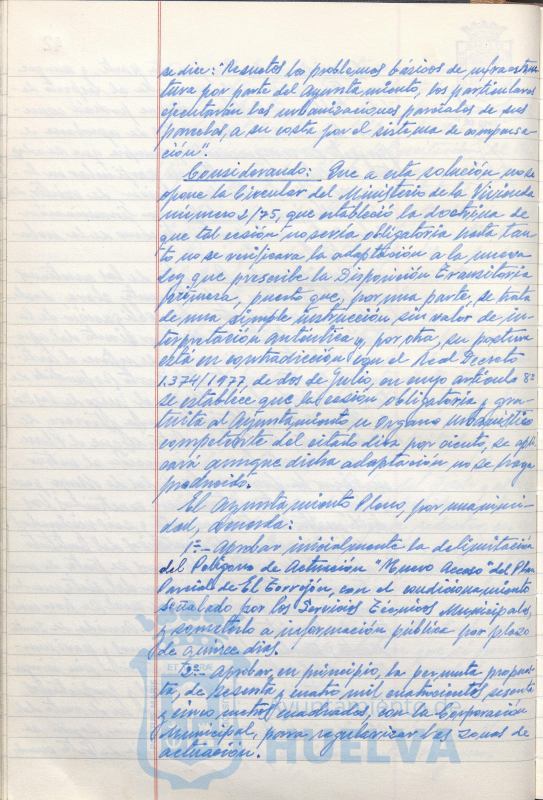 se dice: "Resueltos los problemas básicos de infraestruc-
tura por parte del Ayuntamiento, los particulares
ejecutarán las urbanizaciones parciales de sus
parcelas, a su costa por el sistema de compensa-
ción".
Considerando: Que a esta solución no se
opone la Circular del Ministerio de la Vivienda
número 2/75, que estableció la doctrina de
que tal cesión no sería obligatoria hasta tan-
to no se verificara la adaptación a la nueva
Ley que prescribe la Disposición Transitoria
Primera, puesto que, por una parte, se trata
de una simple instrucción sin valor de in-
terpretación auténtica y, por otra, su postura
está en contradicción con el Real Decreto
1.374/1977, de dos de Julio, en cuyo artículo 8º
se establece que la cesión obligatoria y gra-
tuita al Ayuntamiento u Organo Urbanístico
competente del citado diez por ciento, se apli
cará aunque dicha adaptación no se haya
producido.
El Ayuntamiento Pleno, por unanimi-
dad, acuerda:
1º.- Aprobar inicialmente la delimitación
del Polígono de Actuación "Nuevo Acceso" del Plan
Parcial de El Torrejón, con el condicionamiento
señalado por los Servicios Técnicos Municipales,
y someterlo a información pública por plazo
de quince días.
2º.- Aprobar, en principio, la permuta propues-
ta, de sesenta y cuatro mil cuatrocientos sesenta
y cinco metros cuadrados, con la Corporación
Municipal, para regularizar las zonas de
actuación.
Ayuntamiento de
HUELVA